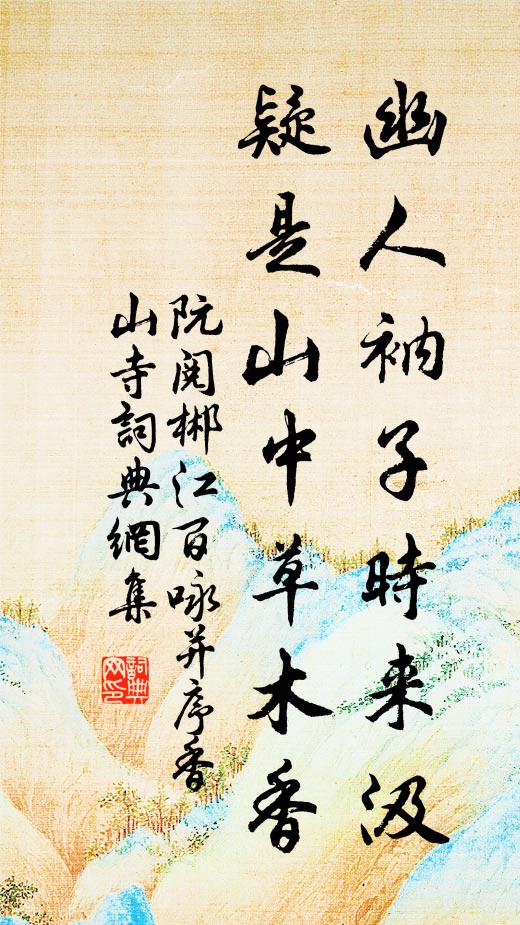 幽人衲子時来汲
疑是山中草木香
阮閱郴江百咏并序香
山寺詞典網集
詞典
网印